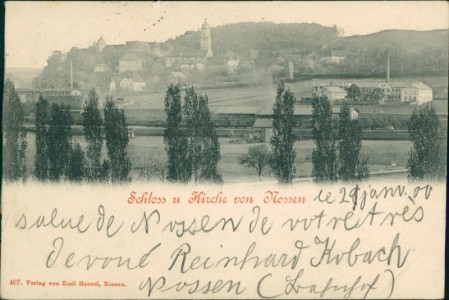 Schloss u Kirche von Nossen
le 29 janv. 00
salue de Nossen de votre très
devoué Reinhard Kobach
Nossen (Bahnhof)
467. Verlag von Emil Hensel, Nossen.